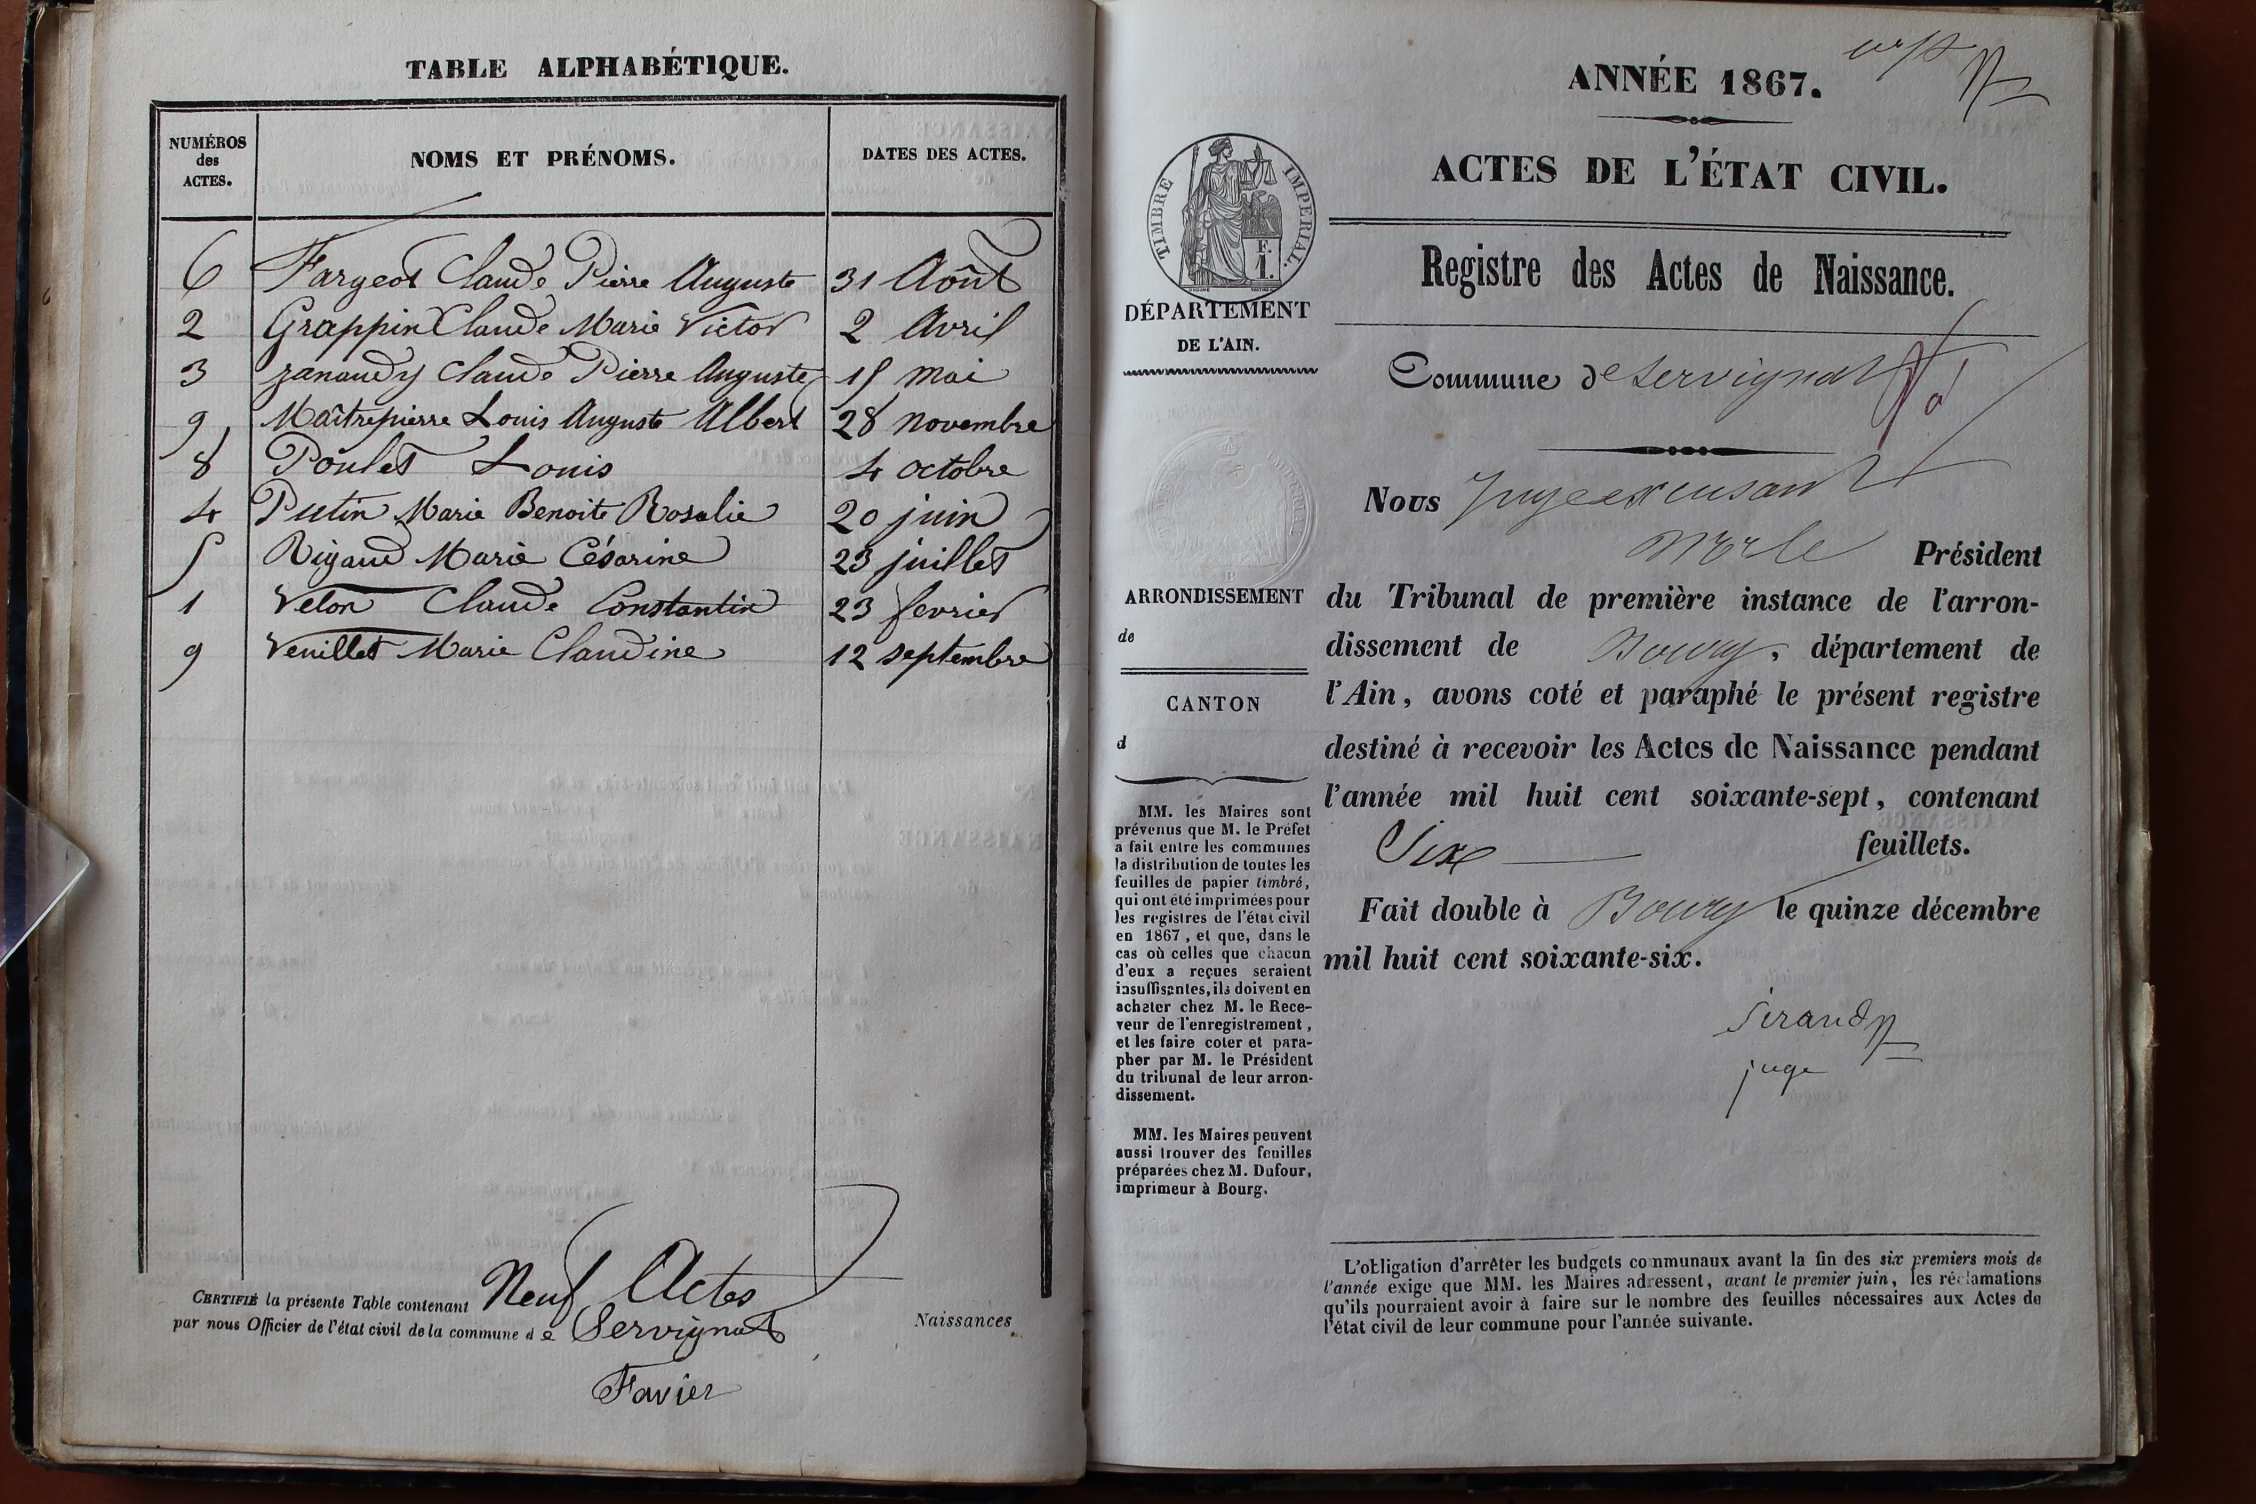 TABLE ALPHABÉTIQUE.
NUMÉROS des ACTES. NOMS ET PRÉNOMS. DATES DES ACTES.
6 Fargeot Claude Pierre Auguste 31 Août
2 Grappin Claude Marie Victor 2 Avril
3 Janaudy Claude Pierre Auguste 15 mai
9 Maîtrepierre Louis Auguste Albert 28 novembre
8 Poulet Louis 4 octobre
4 Putin Marie Benoite Rosalie 20 juin
5 Rigaud Marie Césarine 23 juillet
1 Velon Claude Constantin 23 fevrier
9 Veuillet Marie Claudine 12 septembre
CERTIFIÉ la présente Table contenant Neuf Actes
par nous Officier de l'état civil de la commune de Servignat
Naissances
Favier
ANNÉE 1867.
ACTES DE L'ÉTAT CIVIL.
TIMBRE IMPERIAL.
F. 1.
DÉPARTEMENT
DE L'AIN.
ARRONDISSEMENT
de
CANTON
d
MM. les Maires sont
prévenus que M. le Préfet
a fait entre les communes
la distribution de toutes les
feuilles de papier timbré,
qui ont été imprimées pour
les registres de l'état civil
en 1867, et que, dans le
cas où celles que chacun
d'eux a reçues seraient
insuffisantes, ils doivent en
acheter chez M. le Rece-
veur de l'enregistrement,
et les faire coter et para-
pher par M. le Président
du tribunal de leur arron-
dissement.
MM. les Maires peuvent
aussi trouver des feuilles
préparées chez M. Dufour,
imprimeur à Bourg.
Registre des Actes de Naissance.
Commune de Servignat
Nous Juge
Mr le Président
du Tribunal de première instance de l'arron-
dissement de Bourg, département de
l'Ain, avons coté et paraphé le présent registre
destiné à recevoir les Actes de Naissance pendant
l'année mil huit cent soixante-sept, contenant
Six feuillets.
Fait double à Bourg le quinze décembre
mil huit cent soixante-six.
Sirand
juge
L'obligation d'arrêter les budgets communaux avant la fin des six premiers mois de
l'année exige que MM. les Maires adressent, avant le premier juin, les réclamations
qu'ils pourraient avoir à faire sur le nombre des feuilles nécessaires aux Actes de
l'état civil de leur commune pour l'année suivante.